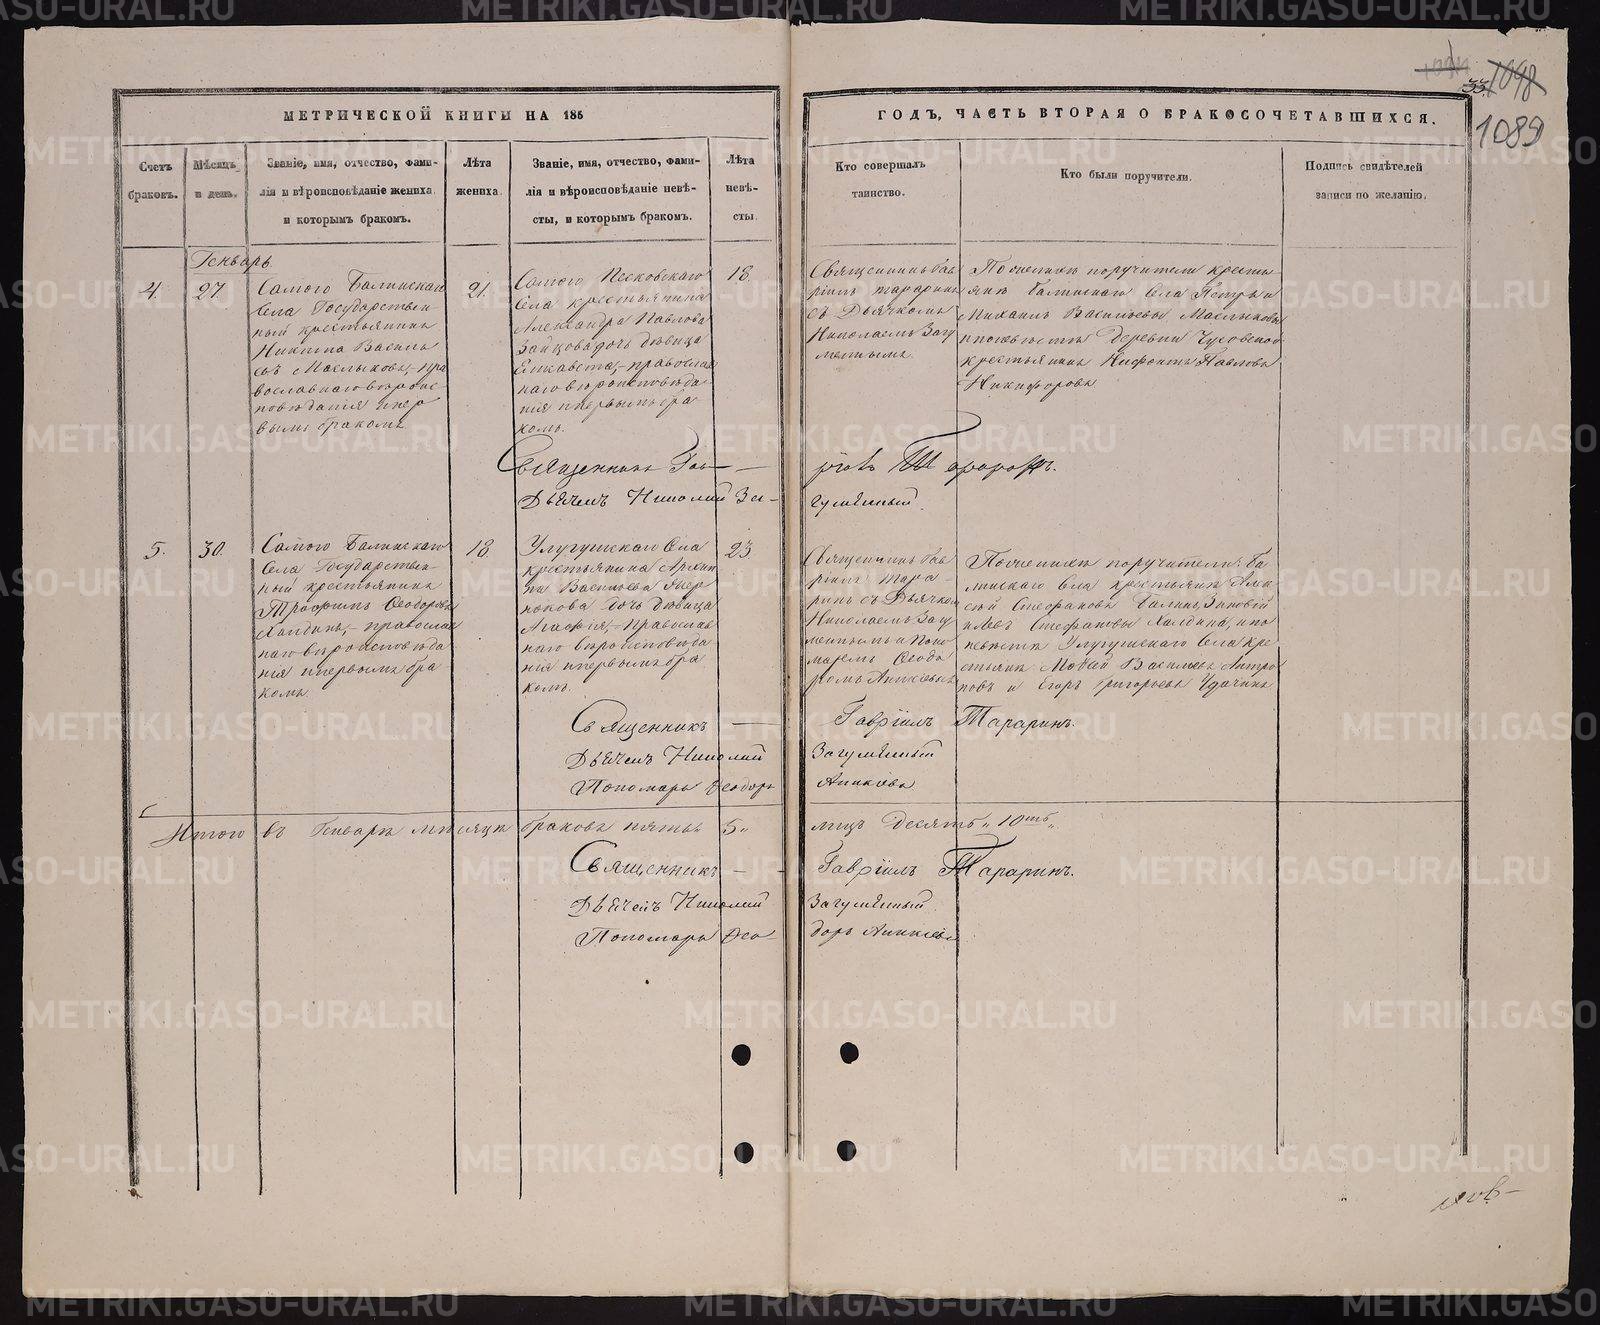 33.
1098
1089
МЕТРИЧЕСКОЙ КНИГИ НА 185
ГОДЪ, ЧАСТЬ ВТОРАЯ О БРАКОСОЧЕТАВШИХСЯ.
Счетъ
браковъ.
Мѣсяцъ
и день.
Званіе, имя, отчество, фами-
лія и вѣроисповѣданіе жениха
и которымъ бракомъ.
Лѣта
жениха
Званіе, имя, отчество, фами-
лія и вѣроисповѣданіе невѣ-
сты, и которымъ бракомъ.
Лѣта
невѣ-
сты.
Кто совершалъ
таинство.
Кто были поручители.
Подпись свидѣтелей
записи по желанію.
Генварь
4.
27
Самого Балинскаго
Села Государствен-
ный крестьянинъ
Никита Василь
евъ Маслыковъ,- пра
вославнаго вѣроис
повѣданія и пер
вымъ бракомъ
21.
Самого Песковскаго
Села крестьянина
Александра Павлова
Зайцова дочь дѣвица
Елисавета,- православ
наго вѣроисповѣда
нія и первымъ бра
комъ.
18.
Священникъ Гав
ріилъ Тараринъ
съ Дьячкомъ
Николаемъ Загу
меннымъ
По женихѣ поручители кресть
яне Балинскаго Села Петръ и
Михаилъ Васильевы Маслыковы
и по невѣстѣ Деревни Чуховской
крестьянинъ Нифонтъ Павловъ
Никифоровъ
Священникъ Гав-
ріилъ Тараринъ.
Дьячекъ Николай За-
гуменный
5.
30.
Самого Балинскаго
Села Государствен-
ный крестьянинъ
Трофимъ Ѳеодоровъ
Халдинъ,- православ
наго вѣроисповѣда
нія и первымъ бра
комъ.
18.
Улугушскаго Села
крестьянина Архип
па Васильева
нокова дочь дѣвица
Агафія,- Православ
наго вѣроисповѣда
нія и первымъ бра
комъ.
23.
Священникъ Гав
ріилъ Тара-
ринъ съ Дьячкомъ
Николаемъ Загу
меннымъ и Поно
маремъ Ѳеодо
ромъ Аникіевымъ
По женихѣ поручители: Ба
линскаго Села крестьяне Алек
сѣй Стефановъ Балинъ, Зиновій
и Левъ Стефановы Халдины, и по
невѣстѣ Улугушскаго Села кре
стьяне Мовсей Васильевъ Антро
повъ и Егоръ Григорьевъ Удачинъ
Священникъ
Гавріилъ Тараринъ.
Дьячекъ Николай
Загуменный
Пономарь Ѳеодоръ
Аникіевъ
Итого въ Генварѣ мѣсяцѣ браковъ пять 5"
лицъ десять" 10ть"
Священникъ
Гавріилъ Тараринъ.
Дьячекъ Николай
Загуменный
Пономарь Ѳео-
доръ Аникіевъ
METRIKI.GASO-URAL.RU